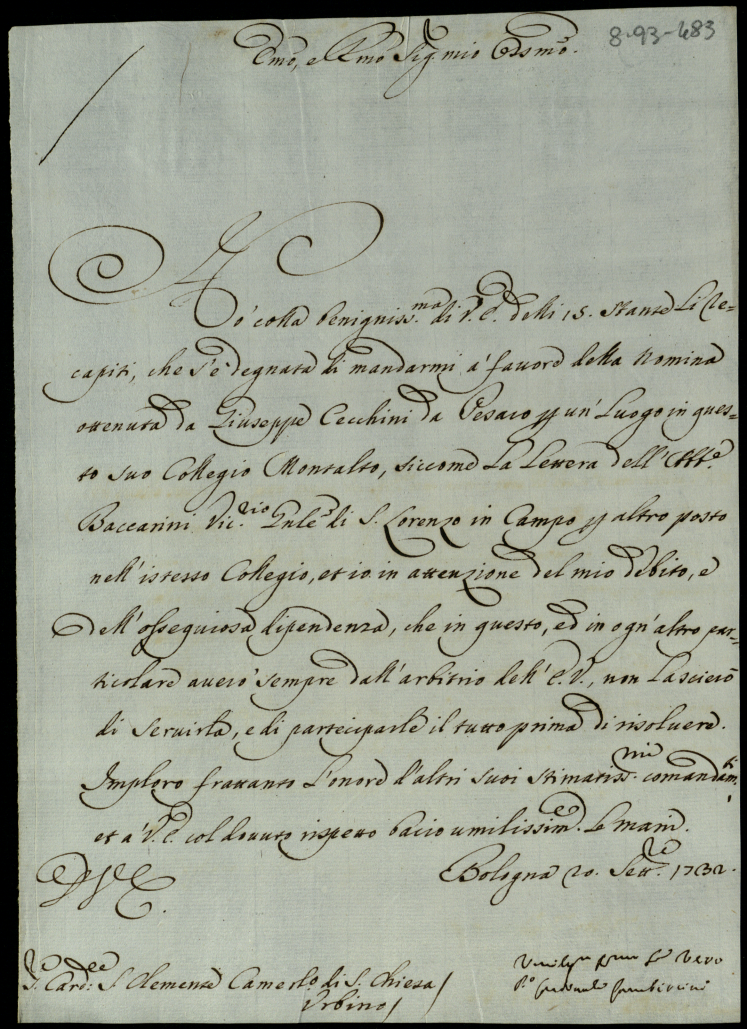 8-93-483
Emõ, e Rmõ Sig. mio Ossmõ.
Hò colla benigniss.ma di V.E. delli 15. stante Li Re=
capiti, che s'è degnata di mandarmi à favore della Nomina
ottenuta da Giuseppe Cecchini da Pesaro p un' Luogo in ques=
to suo Collegio Montalto, siccome La Lettera dell' Abb.e
Baccarini Vic.rio Gñle di S. Lorenzo in Campo p altro posto
nell' istesso Collegio, et io in attenzione del mio debito, e
dell' osseguiosa dipendenza, che in questo, ed in ogn' altro par=
ticolare averò sempre dall' arbitrio dell' E.V., non Lascierò
di servirla, e di participarle il tutto prima di risolvere.
Imploro frattanto L'onore d'altri suoi stimatiss.mi comandam.ti
et à V.E. col dovuto rispetto bacio umilissime. Le mani.
Bologna 20. Sett.re 1732.
D V E.
S.re Card.le S. Clemente Camerlõ di S. Chiesa/
Urbino/